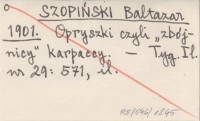 SZOPIŃSKI Baltazar
1901. Opryszki czyli „zbój-
nicy" karpaccy. – Tyg. Il.
nr 29: 571, il.